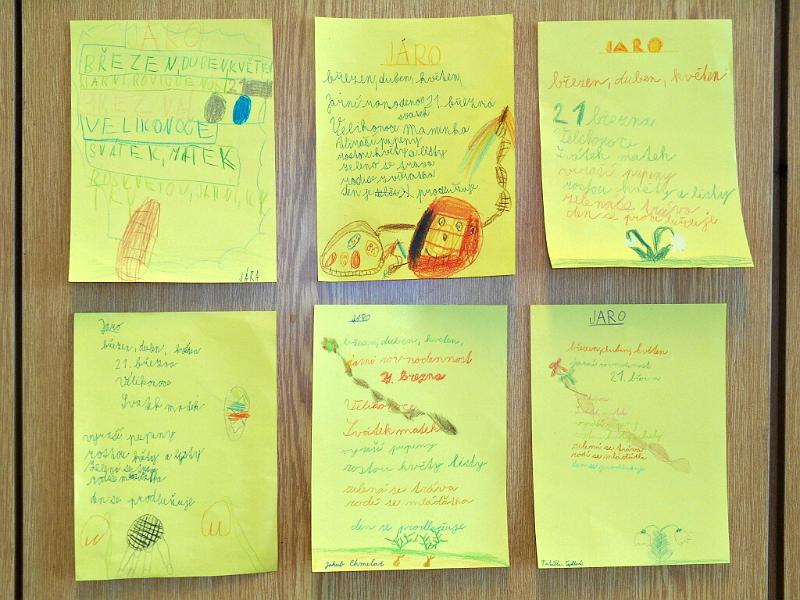 JARO
BŘEZEN, DUBEN, KVĚTEN
JARNÍ, ROVNODENNOST 21
BŘEZNA
VELIKONOCE
SVÁTEK, MATEK
JÁRA
JÁRO
březen, duben, květen,
Jarní rovnodenos 21. března
svátek
Velikonoce Maminka
pupeny
rostou květy a listy
zeleno se tráva
den je prodlužuje
JARO
březen, duben, květen
21 března
Velikonoce
Svátek matek
vyraší pupeny
rostou květy a listy
zelená se tráva
den se prodlužuje
Jaro
březen, duben, květen
21. března
Velikonoce
Svátek matek
vyraší pupeny
rostou květy a listy
zelená se
den se prodlužuje
JARO
březen, duben, květen,
jarní rovnodennost
21. března
Velikonoce
Svátek matek
vyraší pupeny
rostou květy listy
zelená se tráva
rodí se mláďátka
den se prodlužuje
Jakub Chmelař
JARO
březen, duben, květen
jarní
21. března
zelená se tráva
rodí se mláďátka
den se prodlužuje